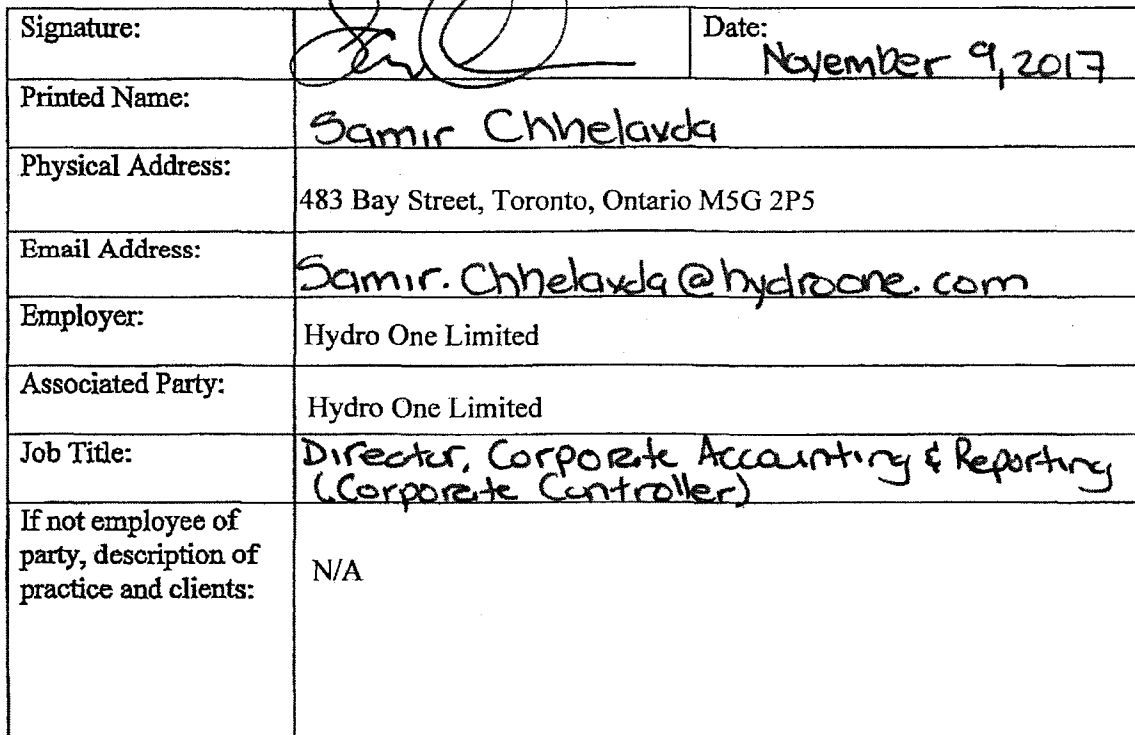 Signature: Date:
November 9, 2017
Printed Name:
Samir Chhelavda
Physical Address:
483 Bay Street, Toronto, Ontario M5G 2P5
Email Address:
Samir.Chhelavda@hydroone.com
Employer:
Hydro One Limited
Associated Party:
Hydro One Limited
Job Title:
Director, Corporate Accounting & Reporting
(Corporate Controller)
If not employee of
party, description of
practice and clients:
N/A